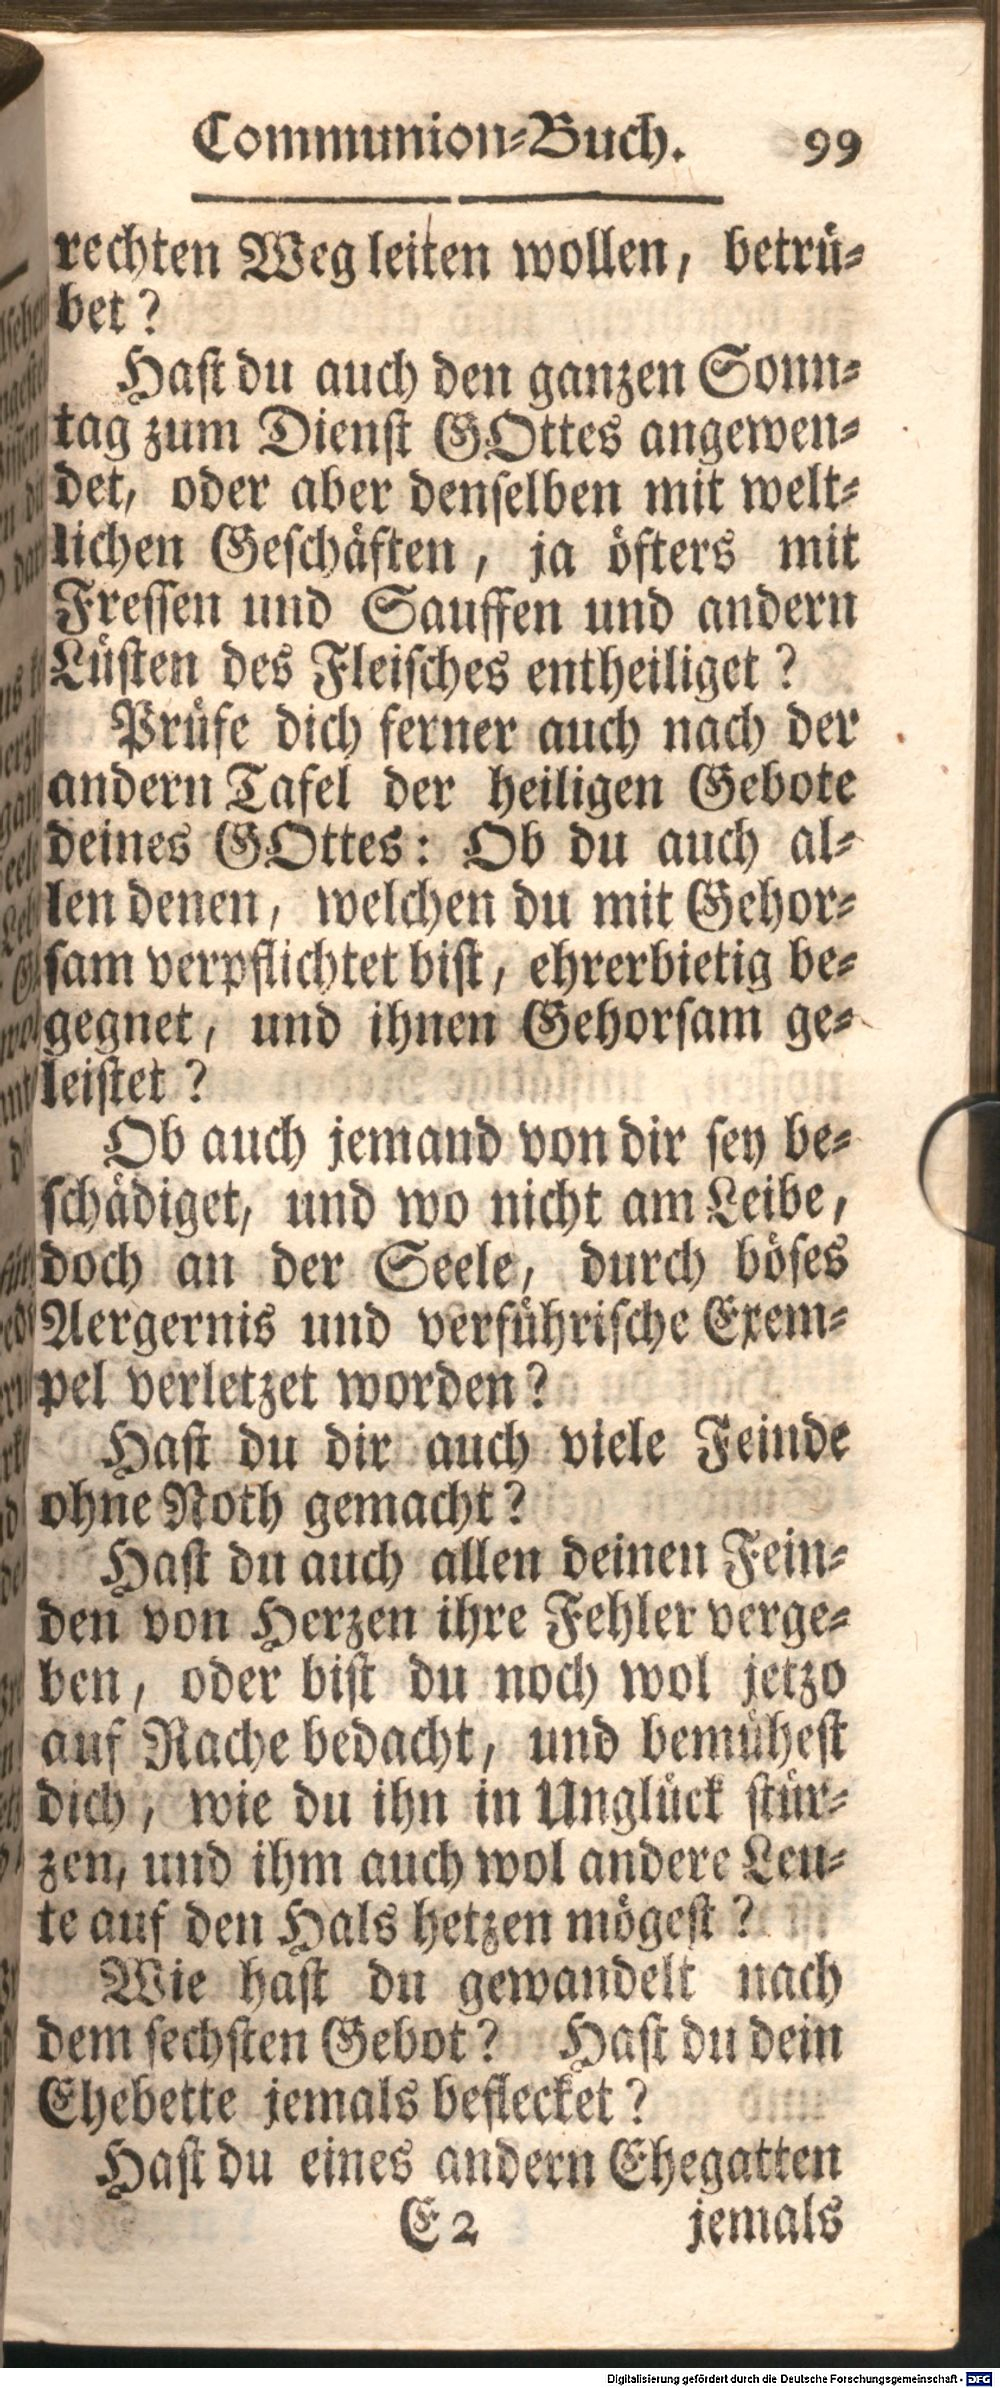 Communion-Buch. 99
rechten Weg leiten wollen, betrü-
bet?
Hast du auch den ganzen Sonn-
tag zum Dienst GOttes angewen-
det, oder aber denselben mit welt-
lichen Geschäften, ja öfters mit
Fressen und Sauffen und andern
Lüsten des Fleisches entheiliget?
Prüfe dich ferner auch nach der
andern Tafel der heiligen Gebote
deines GOttes: Ob du auch al-
len denen, welchen du mit Gehor-
sam verpflichtet bist, ehrerbietig be-
gegnet, und ihnen Gehorsam ge-
leistet?
Ob auch jemand von dir sey be-
schädiget, und wo nicht am Leibe,
doch an der Seele, durch böses
Aergernis und verführische Exem-
pel verletzet worden?
Hast du dir auch viele Feinde
ohne Noth gemacht?
Hast du auch allen deinen Fein-
den von Herzen ihre Fehler verge-
ben, oder bist du noch wol jetzo
auf Rache bedacht, und bemühest
dich, wie du ihn in Unglück stür-
zen, und ihm auch wol andere Leu-
te auf den Hals hetzen mögest?
Wie hast du gewandelt nach
dem sechsten Gebot? Hast du dein
Ehebette jemals beflecket?
Hast du eines andern Ehegatten
E 2 jemals
Digitalisierung gefördert durch die Deutsche Forschungsgemeinschaft - DFG